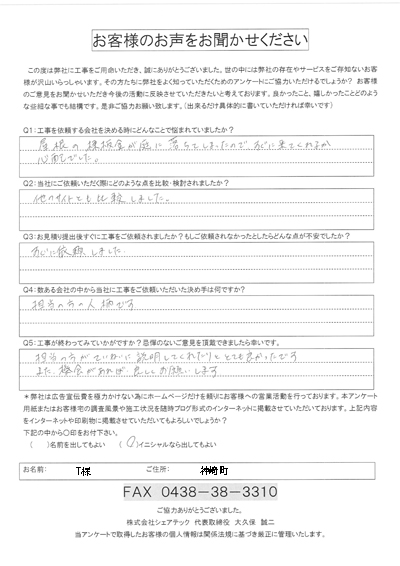 お客様のお声をお聞かせください
この度は弊社に工事をご用命いただき、誠にありがとうございました。世の中には弊社の存在やサービスをご存知ないお客
様が沢山いらっしゃいます。その方たちに弊社をよく知っていただくためのアンケートにご協力いただけるでしょうか? お客様
のご意見をお聞かせいただき今後の活動に反映させていただきたいと考えております。良かったこと、嬉しかったことどのよう
な些細な事でも結構です。是非ご協力お願い致します。(出来るだけ具体的に書いていただければ幸いです)
Q1:工事を依頼する会社を決める時にどんなことで悩まれていましたか?
屋根の棟板金が庭に落ちてしまったので、すぐに来てくれるか
心配でした。
Q2:当社にご依頼いただく際にどのような点を比較・検討されましたか?
他のサイトでも比較しました。
Q3:お見積り提出後すぐに工事をご依頼されましたか?もしご依頼されなかったとしたらどんな点が不安でしたか?
すぐに依頼しました
Q4:数ある会社の中から当社に工事をご依頼いただいた決め手は何ですか?
担当の方の人柄です
Q5:工事が終わってみていかがですか?忌憚のないご意見を頂戴できましたら幸いです。
担当の方がていねいに説明してくれたりととても良かったです
また、機会があれば、よろしくお願いします
*弊社は広告宣伝費を極力かけない為にホームページだけを頼りにお客様への営業活動を行っております。本アンケート
用紙またはお客様宅の調査風景や施工状況を随時ブログ形式のインターネットに掲載させていただいております。上記内容
をインターネットや印刷物に掲載させていただいてもよろしいでしょうか?
下記の中から〇印をお付下さい。
( )名前を出してもよい (〇)イニシャルなら出してもよい
お名前: T様 ご住所: 神崎町
FAX 0438-38-3310
ご協力ありがとうございました。
株式会社シェアテック 代表取締役 大久保 誠二
当アンケートで取得したお客様の個人情報は関係法規に基づき厳正に管理いたします。